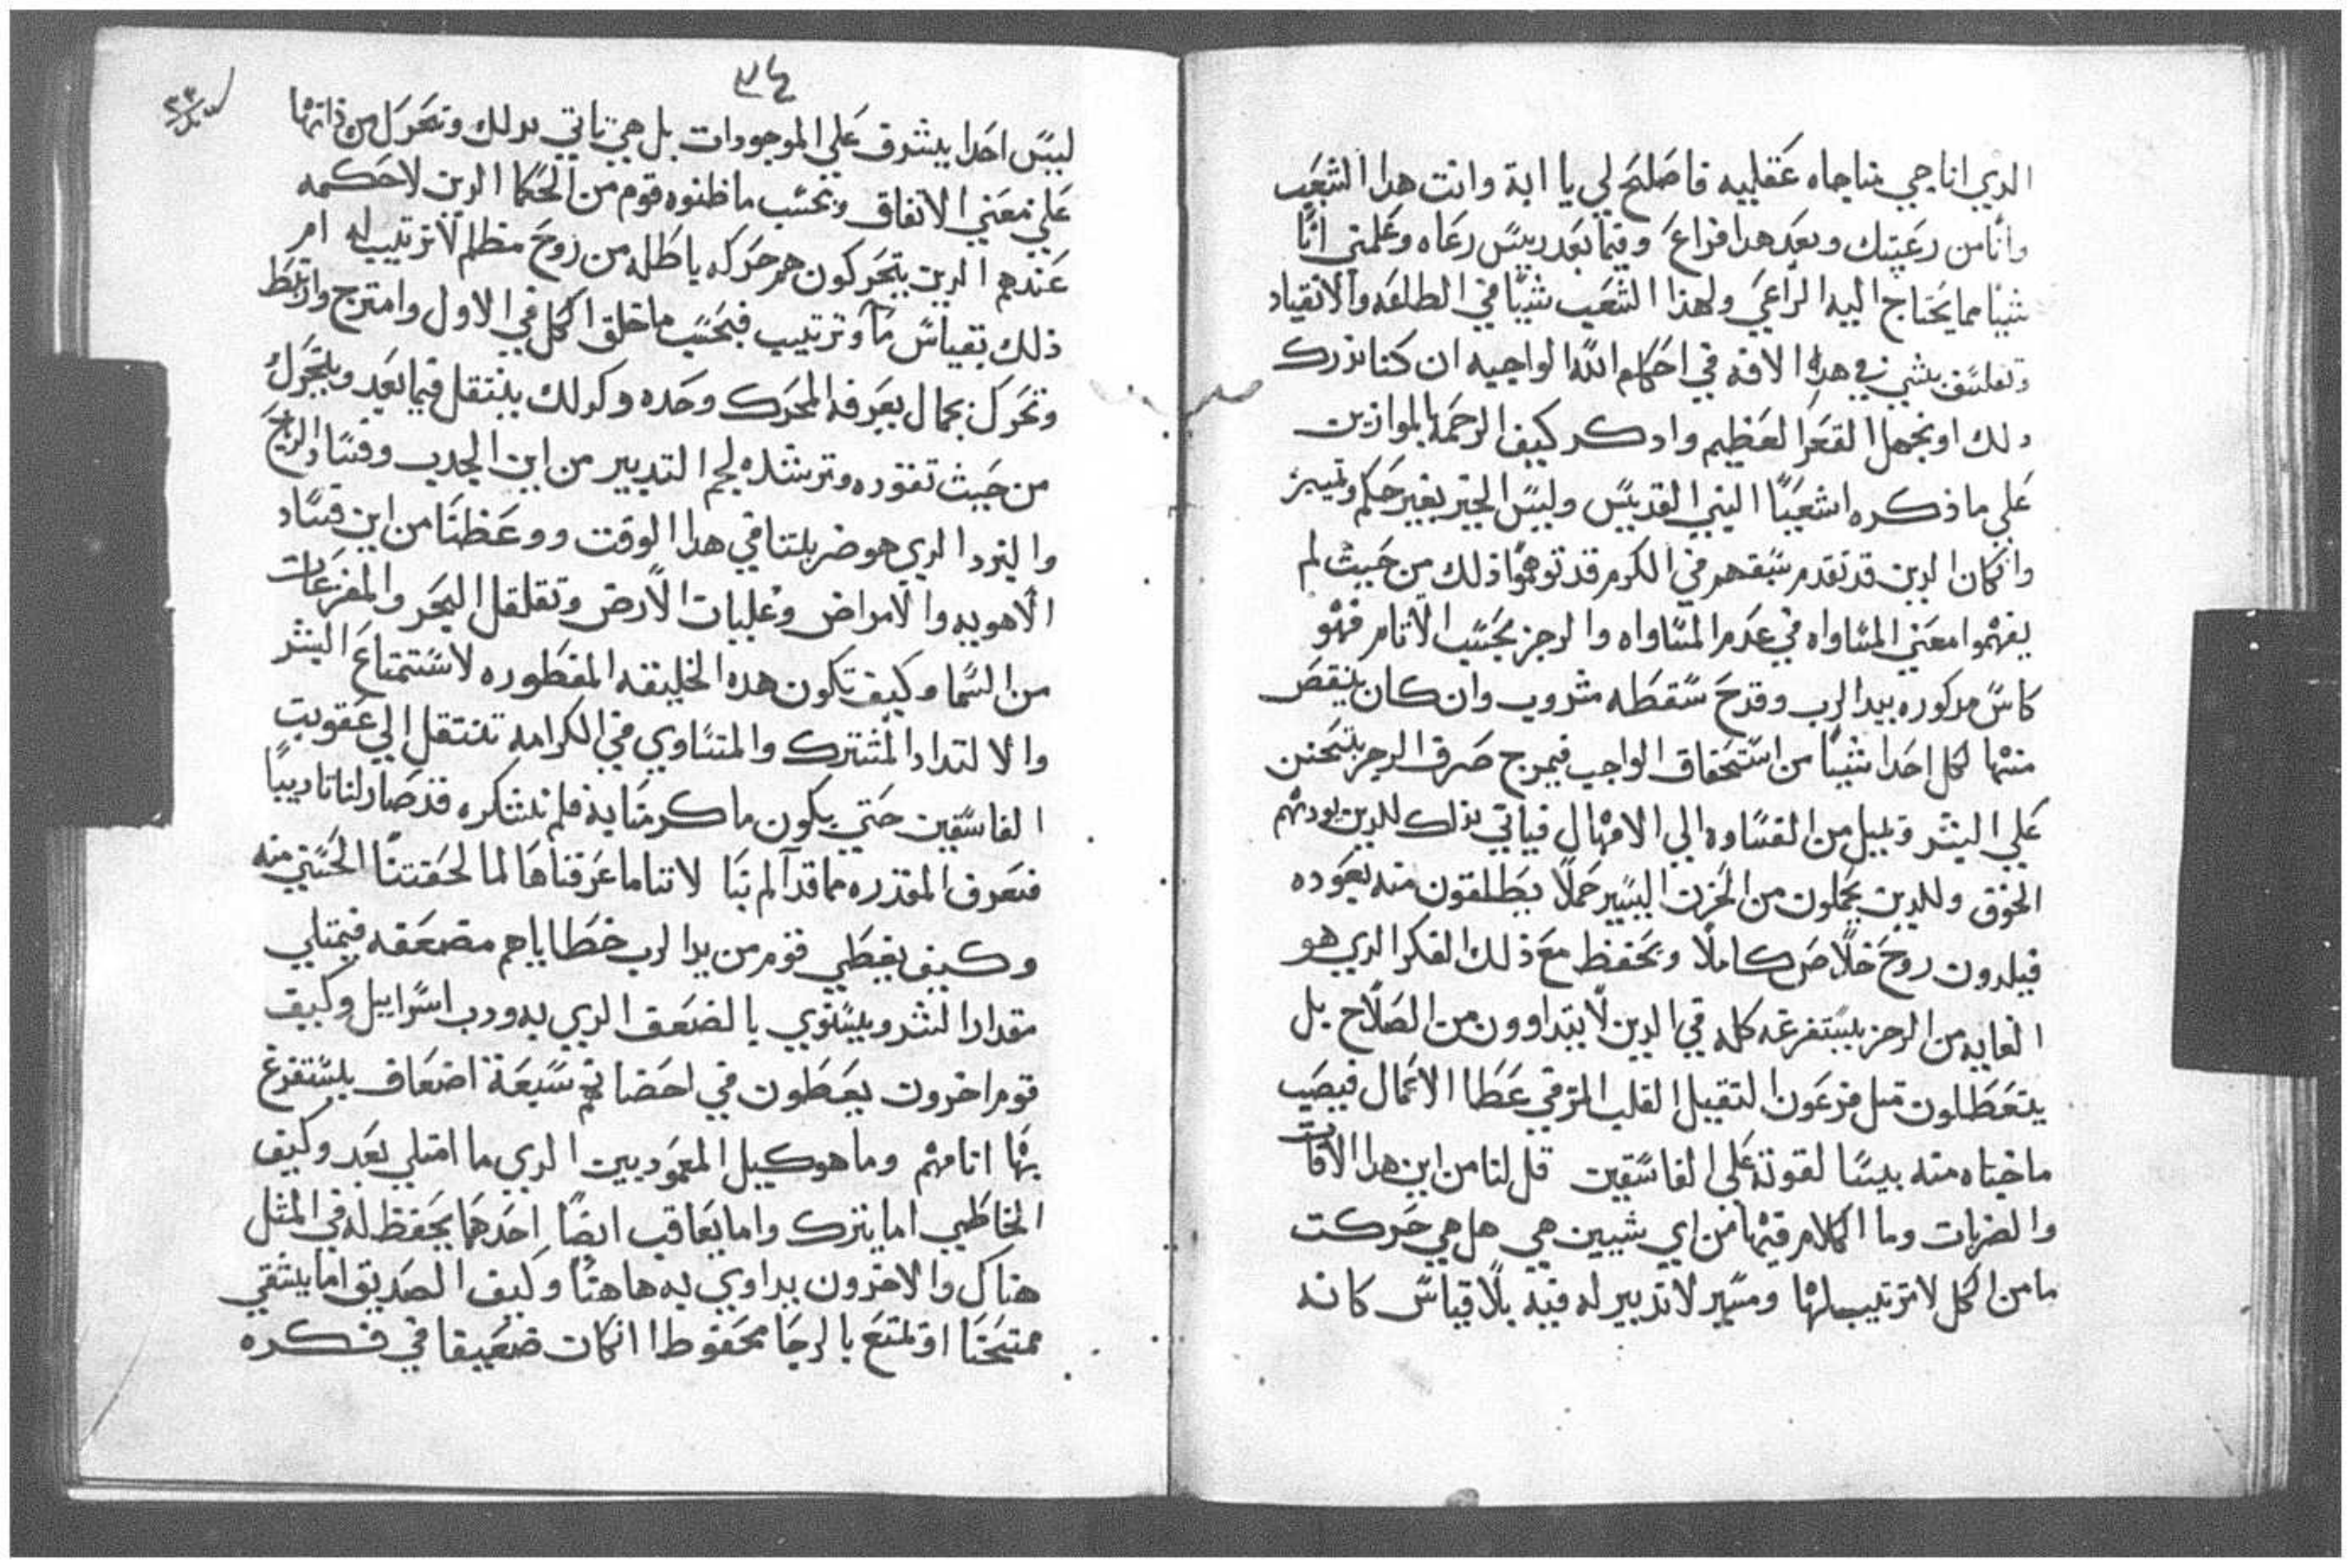 الدي اناجي مناجاه عقليه فاصلح لي يا ابة وانت هدا الشعب
وانا من رعيتك وبعد هدا فراع وفيما بعد رييس رعاه وعلمني انا
شيا مما يحتاج اليه الراعي ولهذا الشعب شيا في الطاعه والانقياد
وتفلسف بشي في هده الافه في احكام الله الواجبه ان كنا ندرك
دلك او نجهل القعر العظيم وادكر كيف الرحمه بالموازين
علي ما ذكره اشعيا النبي القديس وليس الخير بغير حكم وتمييز
وان كان الدين قد تقدم سبقهم في الكرم قد توهموا ذلك من حيث لم
يفهموا معني المساواه في عدم المساواه والرجز بحسب الاتام فهو
كاس مدكوره بيد الرب وقدح سقطه مشروب وان كان ينقص
منها لكل احدا شيا من استحقاق الواجب فيمزج صرف الرجز بتحنن
علي البشر ويميل من القساوه الي الامهال فياتي بذلك للدين يودبهم
الخوف وللدين يحملون من الحزن اليسير حملا يطلقون منه بعوده
فيلدون روح خلاص كاملا ويحفظ مع ذلك العكر الدي هو
الغايه من الرجز يستفرغه كله في الدين لا يتداوون من الصلاح بل
يتعطلون متل فرعون التقيل القلب المر في عطا الاعمال فيصيب
ماخباه منه بديسا لقوته علي الفاسقين قل لنا من اين هدا الافات
والضربات وما الكلام فيها من اي شيين هي هل هي حركت
ما من الكل لا ترتيب لها ومسير لا تدبير له فيه بلا قياس كانه
٣٤
ليس احدا يشرف علي الموجودات بل هي تاتي بدلك وتتحرك من ذاتها
علي معني الاتفاق وبحسب ما ظنوه قوم من الحكما الدين لا حكمه
عندهم الدين يتحركون هم حركه باطله من روح مظلم لا ترتيب له ام
ذلك بقياس ما وترتيب فبحسب ما خلق الكل في الاول وامتزج وارتبط
وتحرك بجمال يعرفه المحرك وحده وكدلك ينتقل فيما بعد ويتحرك
من حيث تقوده وترشده لجم التدبير من اين الجدب وفساد الريح
والبرد الدي هو ضربتنا في هدا الوقت ووعظنا من اين فساد
الاهويه والامراض وغليات الارض وتقلقل البحر والمفزعات
من السما وكيف تكون هده الخليقه المفطوره لاستمتاع البشر
والالتداد المشترك والمتساوي في الكرامه تنتقل الي عقوبت
الفاسقين حتي يكون ما كرمنا به فلم نشكره قد صار لنا تاديبا
فنعرف المقدره مما قد آلم بنا لاننا ما عرفناها لما لحقتنا الحسني منه
وكيف يعطي قوم من يد الرب خطاياهم مضعفه فيمتلي
مقدار الشر ويستوي بالضعف الدي به ودب اسراييل وكيف
قوم اخرون يعطون في احضانهم سبعة اضعاف يستفرغ
بها اتامهم وما هو كيل المعموديين الدي ما امتلي بعد وكيف
الخاطي اما يترك واما يعاقب ايضا احدهما يحفظ له في المثل
هناك والاخرون يداوي به هاهنا وكيف الصديق اما يشقي
ممتحنا او يمتع بالرجا محفوظا ان كان ضعيفا في فكره